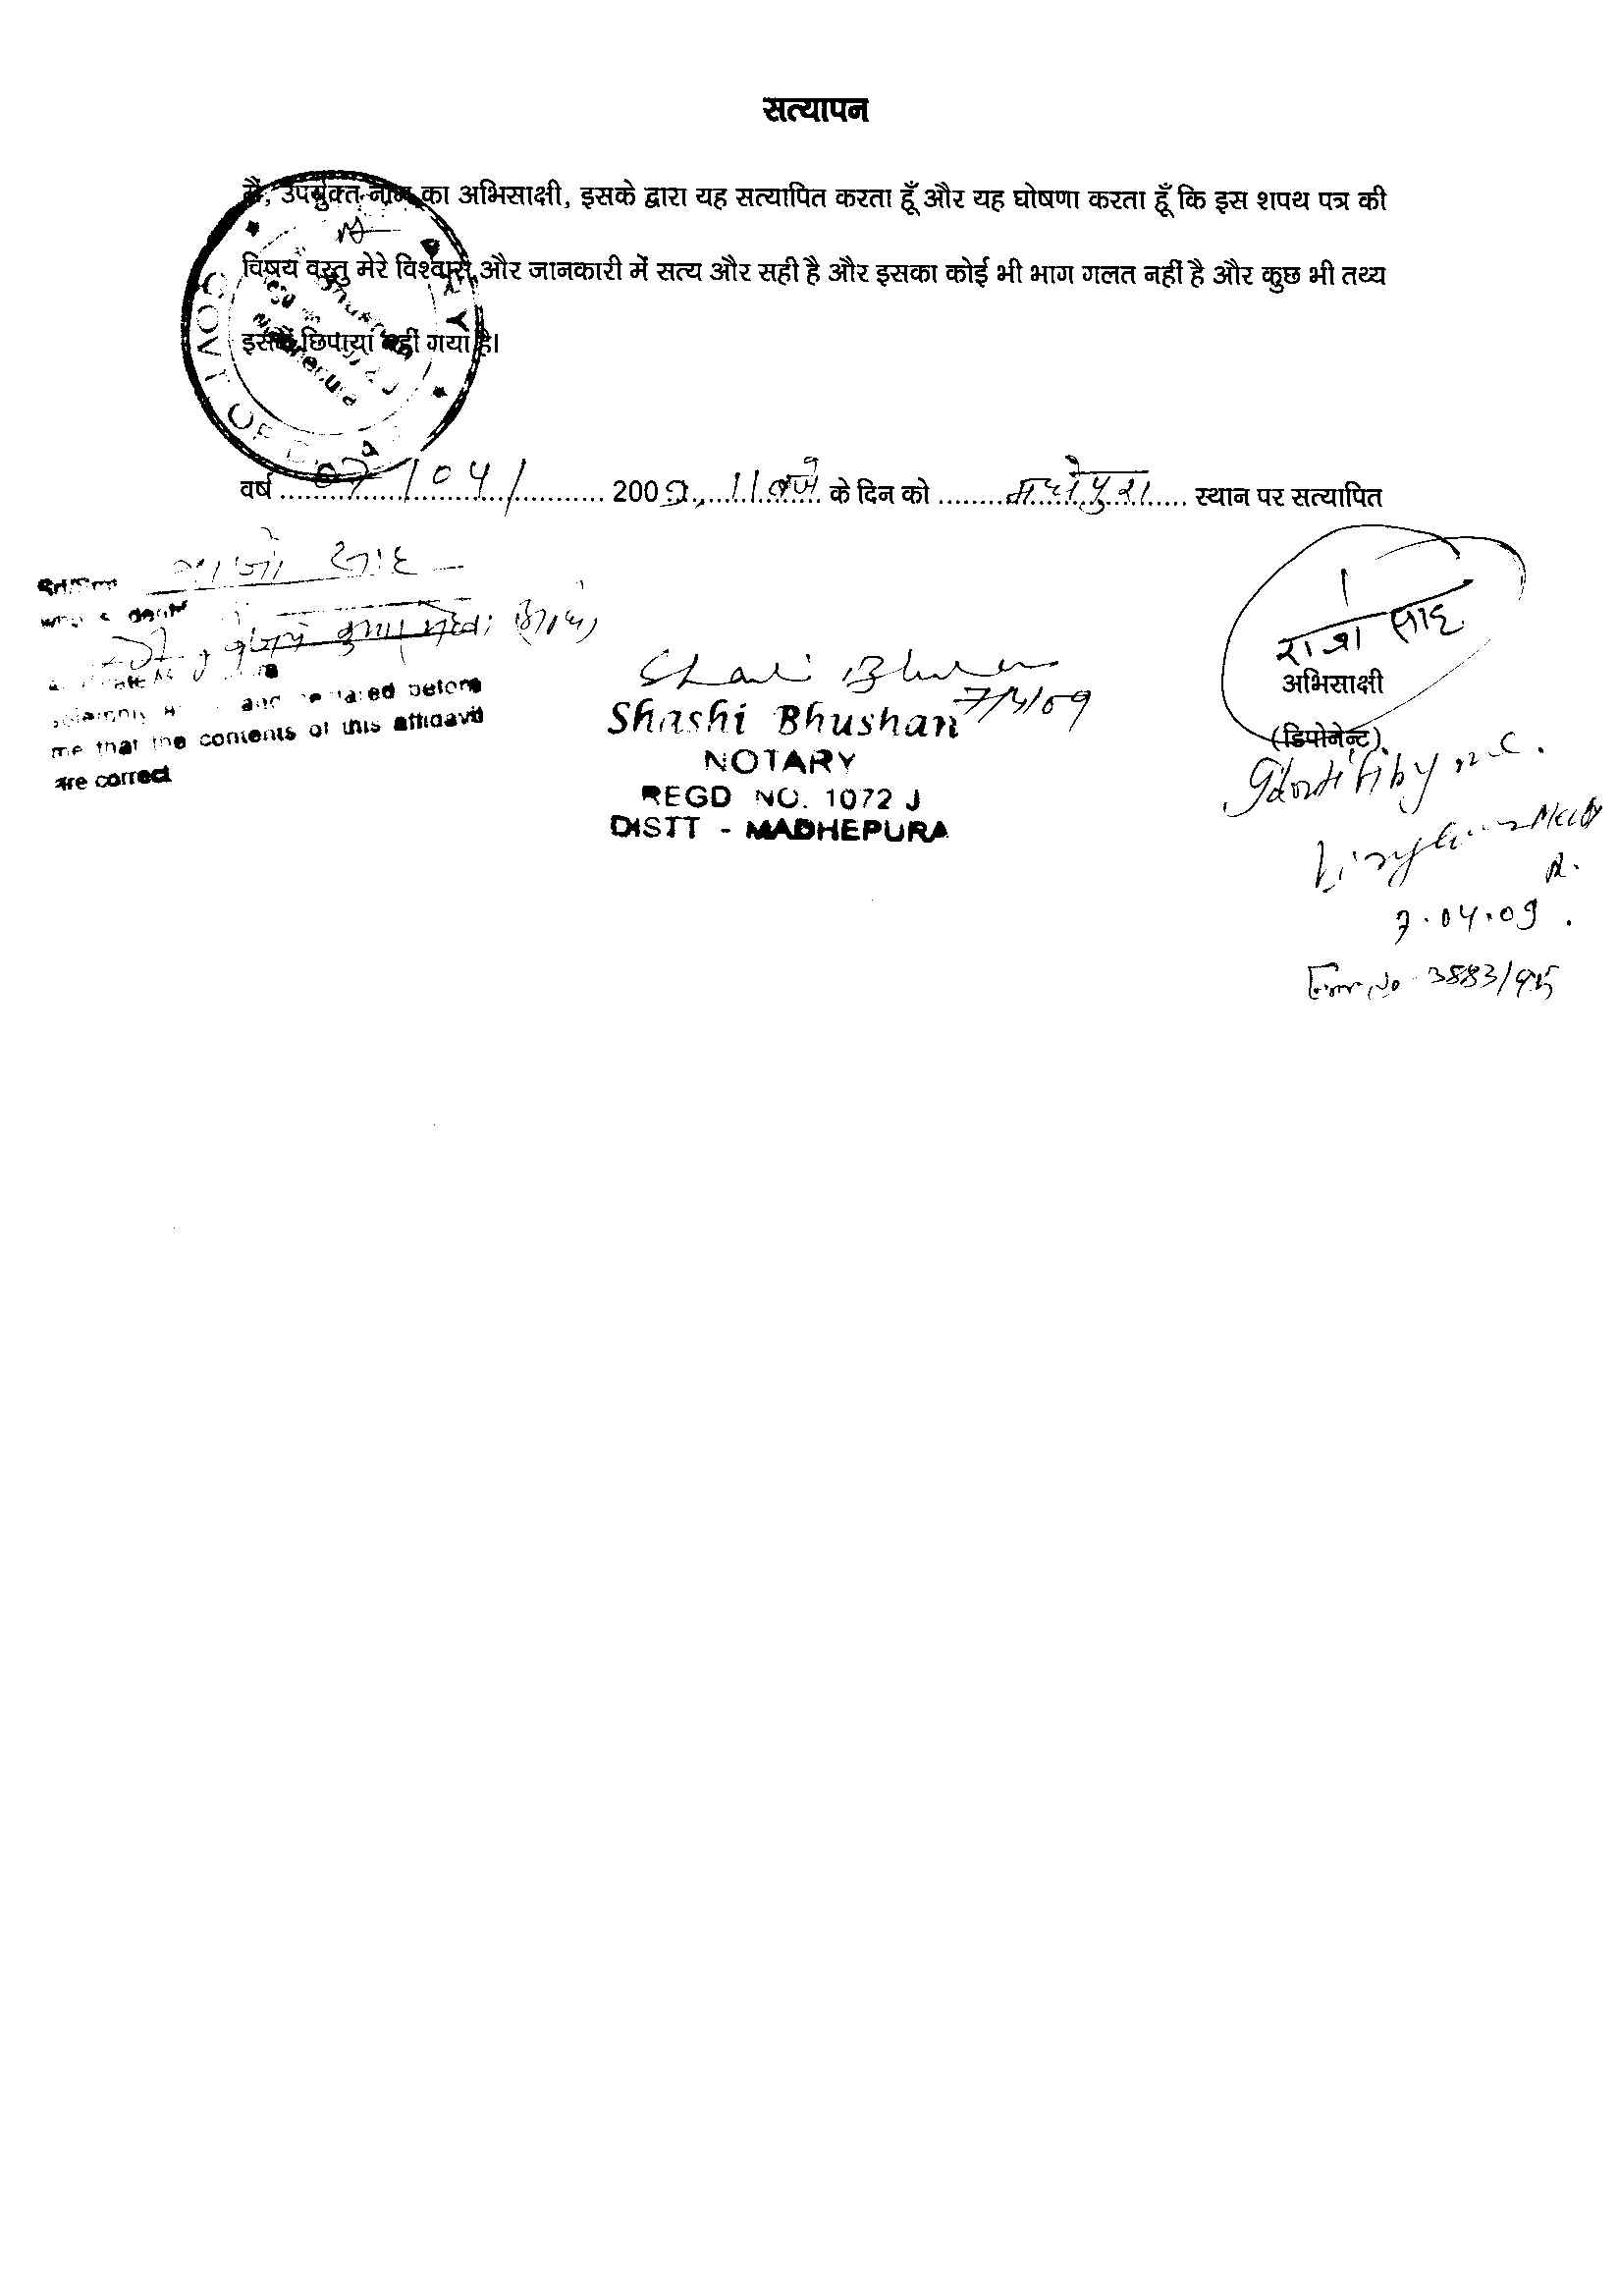 सत्यापन
मैं, उपर्युक्त नाम का अभिसाक्षी, इसके द्वारा यह सत्यापित करता हूँ और यह घोषणा करता हूँ कि इस शपथ पत्र की
विषय वस्तु मेरे विश्वास और जानकारी में सत्य और सही है और इसका कोई भी भाग गलत नहीं है और कुछ भी तथ्य
इसमें छिपाया नहीं गया है।
GOVT OF
वर्ष 07/04/ 2009, 11 बजे के दिन को मधेपुरा स्थान पर सत्यापित
साह
and declared before
me that the contents of this affidavit
are correct
Shashi Bhushan
7/4/09
Shashi Bhushan
NOTARY
REGD NO. 1072 J
DISTT - MADHEPURA
साह
अभिसाक्षी
(डिपोनेन्ट)
by me.
7.04.09
No 3883/95